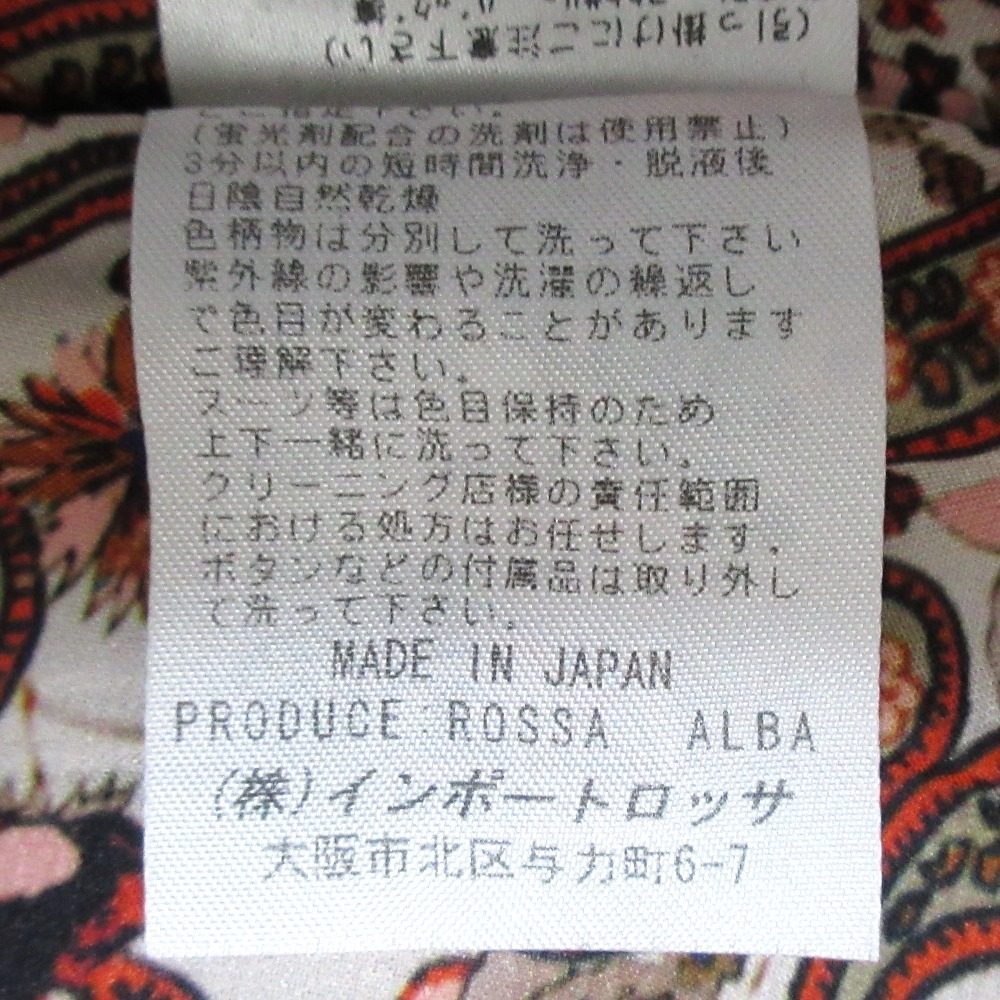 (引っ掛けにご注意下さい)
ご指定下さい。
(蛍光剤配合の洗剤は使用禁止)
3分以内の短時間洗浄・脱液後
日陰自然乾燥
色柄物は分別して洗って下さい
紫外線の影響や洗濯の繰返し
で色目が変わることがあります
ご理解下さい。
スーツ等は色目保持のため
上下一緒に洗って下さい。
クリーニング店様の責任範囲
における処方はお任せします。
ボタンなどの付属品は取り外し
て洗って下さい。
MADE IN JAPAN
PRODUCE:ROSSA ALBA
(株)インポートロッサ
大阪市北区与力町6-7